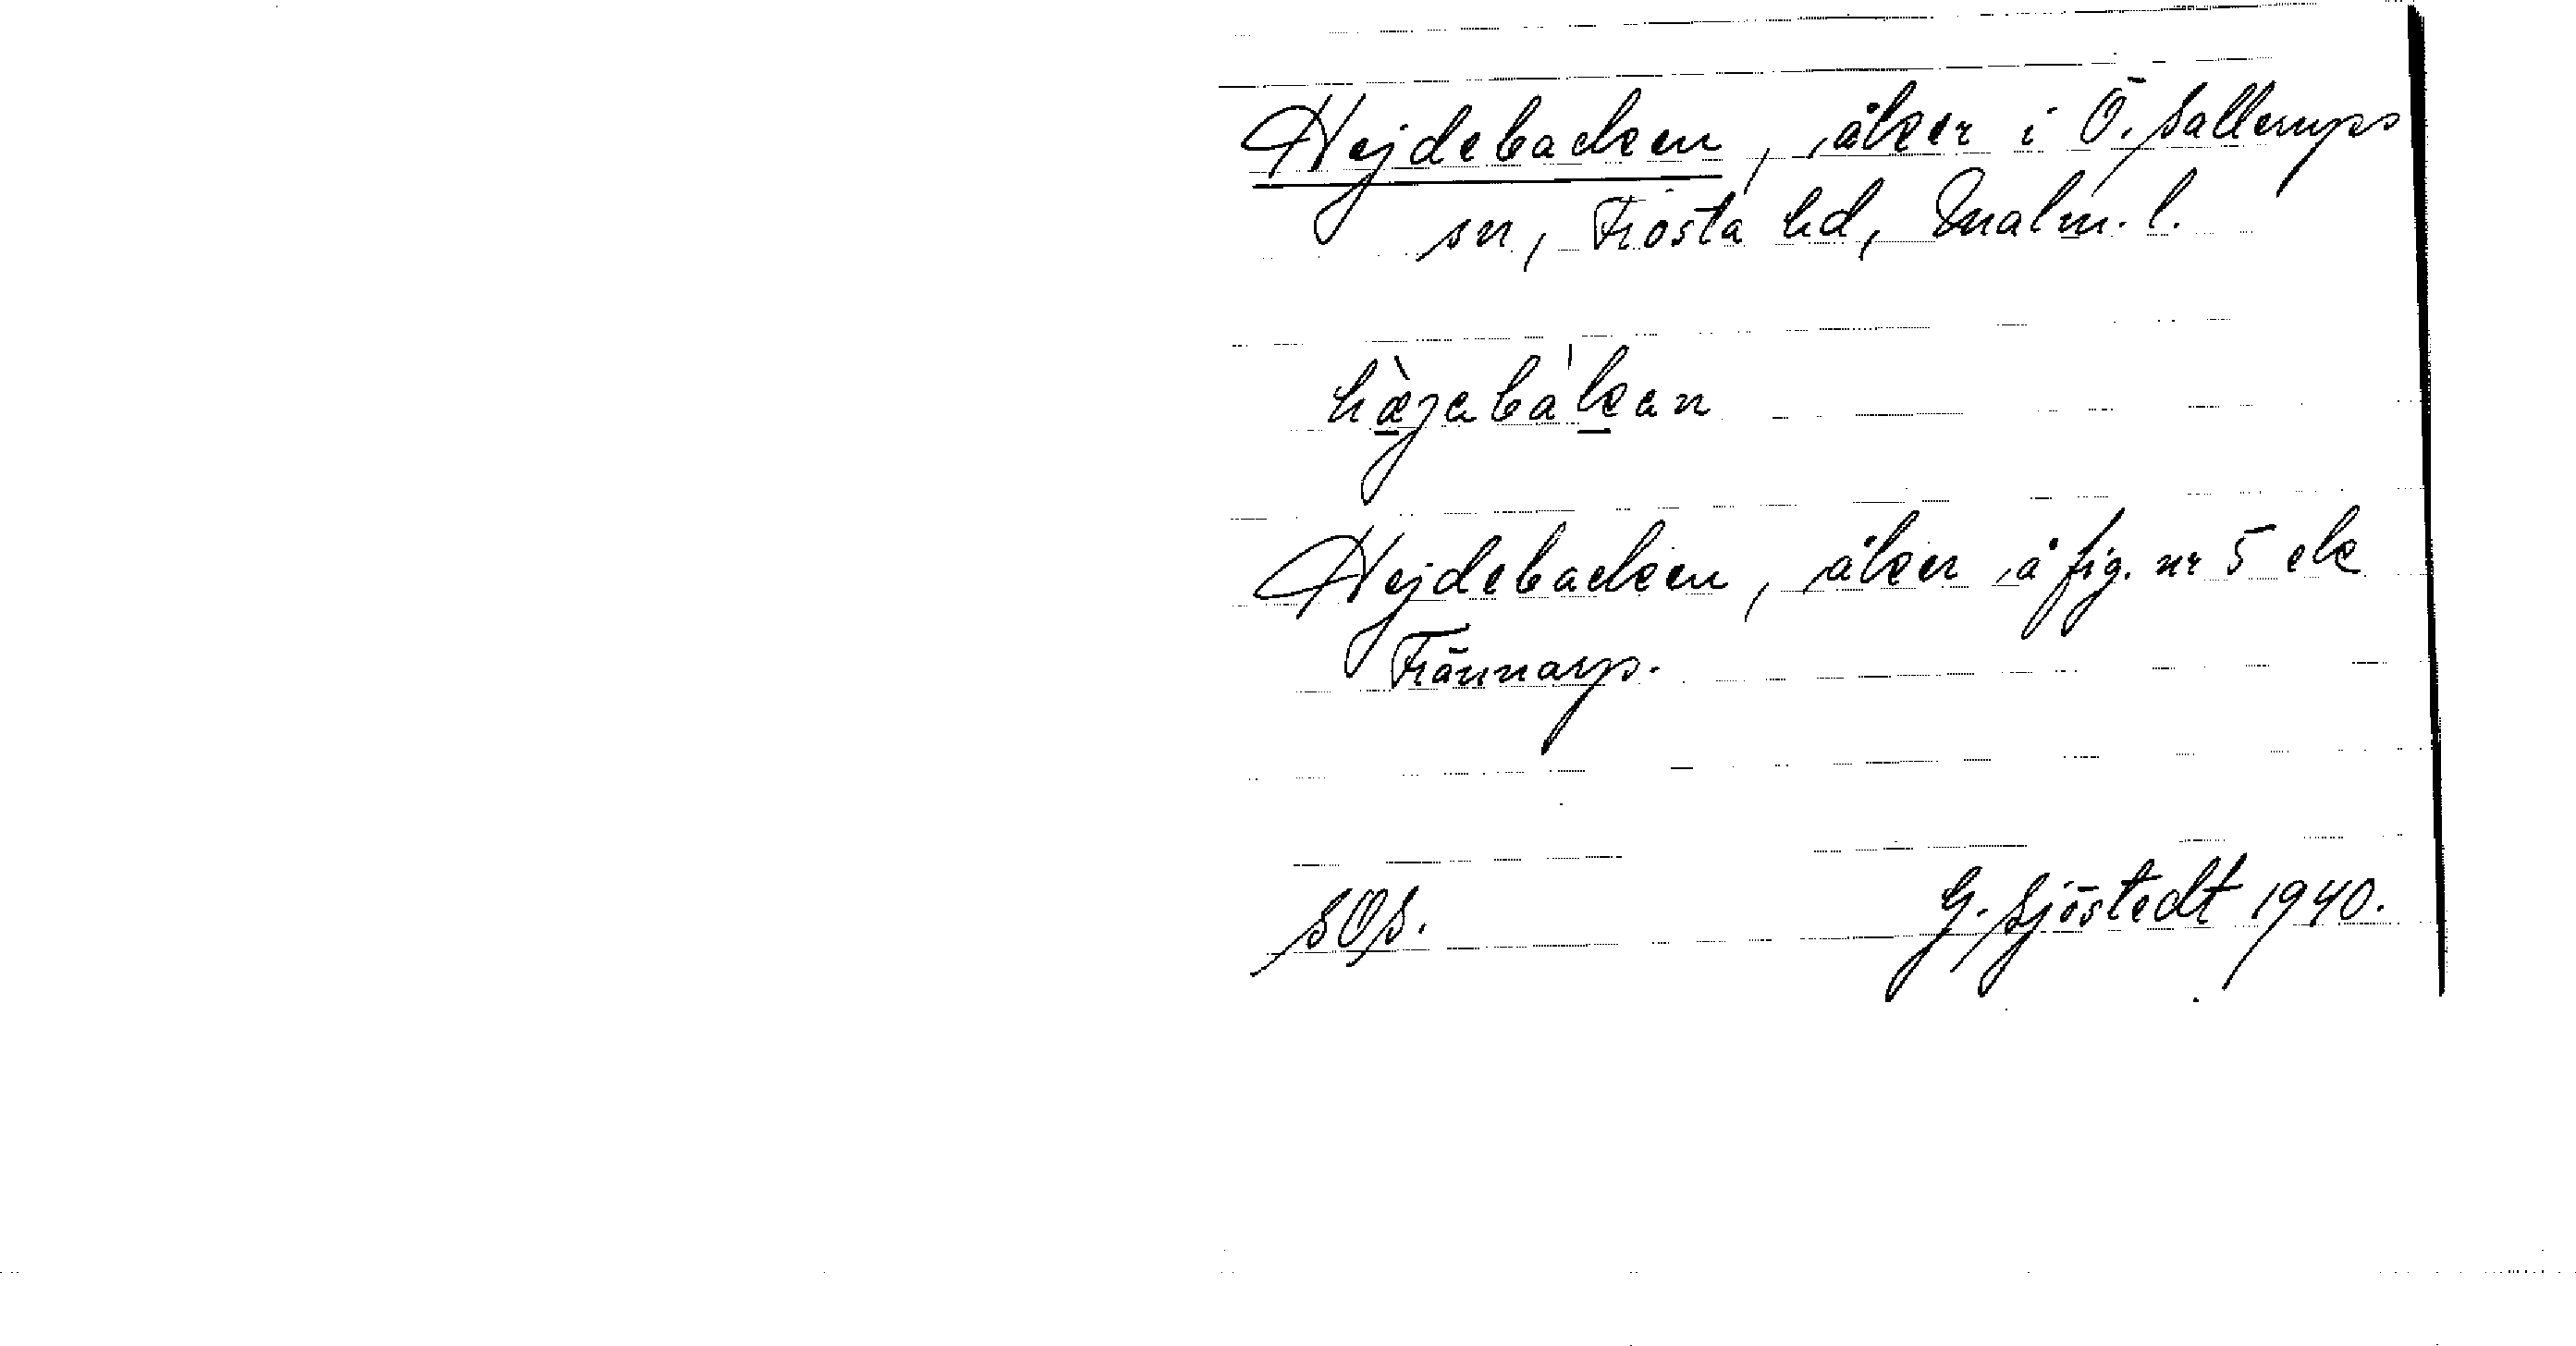 Hejdebacken, åker i Ö. Sallerups
sn, Frosta hd, Malm. l.
hæ̀jabàkan
Hejdebacken, åker å fig. nr 5 ek
Frännarp.
SOS. G. Sjöstedt 1940.